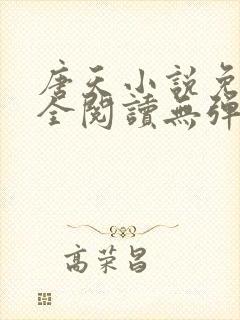 唐天小説免
全閱讀無彈
高荣昌